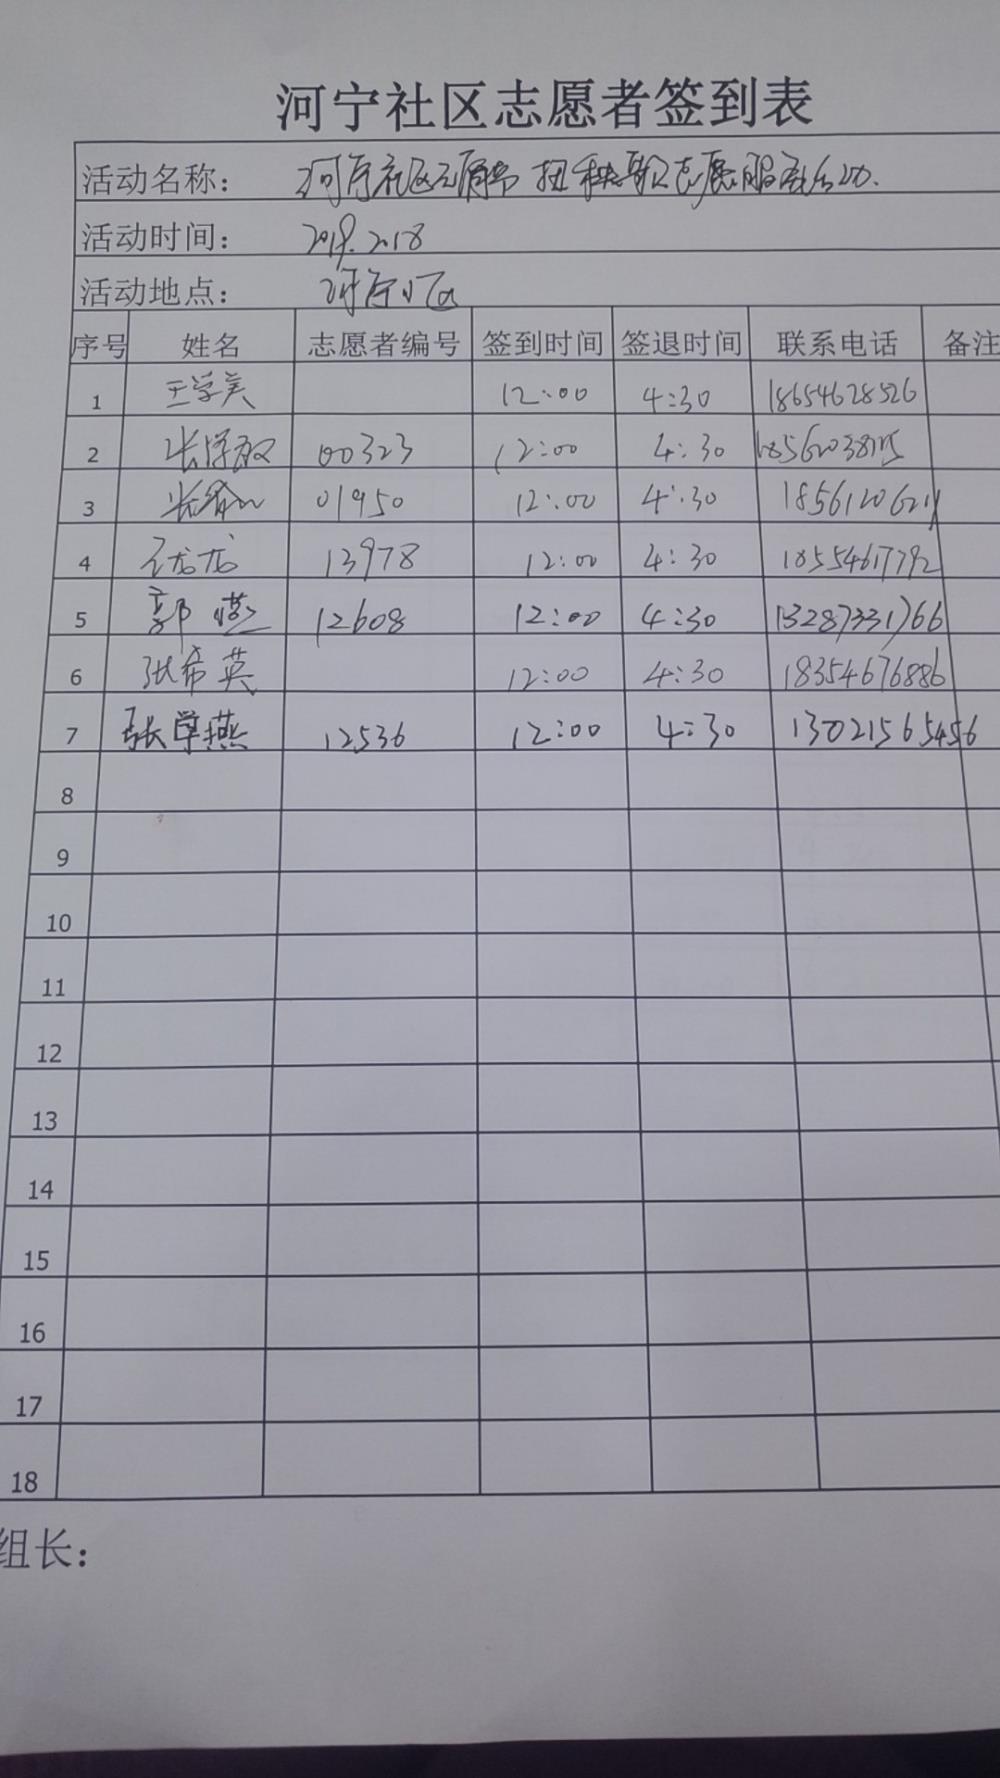 河宁社区志愿者签到表
活动名称： 河宁社区元宵节 扭秧歌志愿服务活动.
活动时间： 2019.2.18
活动地点： 河宁小区
序号 姓名 志愿者编号 签到时间 签退时间 联系电话 备注
1 王学美 12:00 4:30 18654628526
2 00323 12:00 4:30
3 01950 12:00 4:30
4 龙龙 13978 12:00 4:30 18554617792
5 郭燕 12608 12:00 4:30 13287331766
6 张希英 12:00 4:30 18354676886
7 张学燕 12536 12:00 4:30 13021565456
8
9
10
11
12
13
14
15
16
17
18
组长：